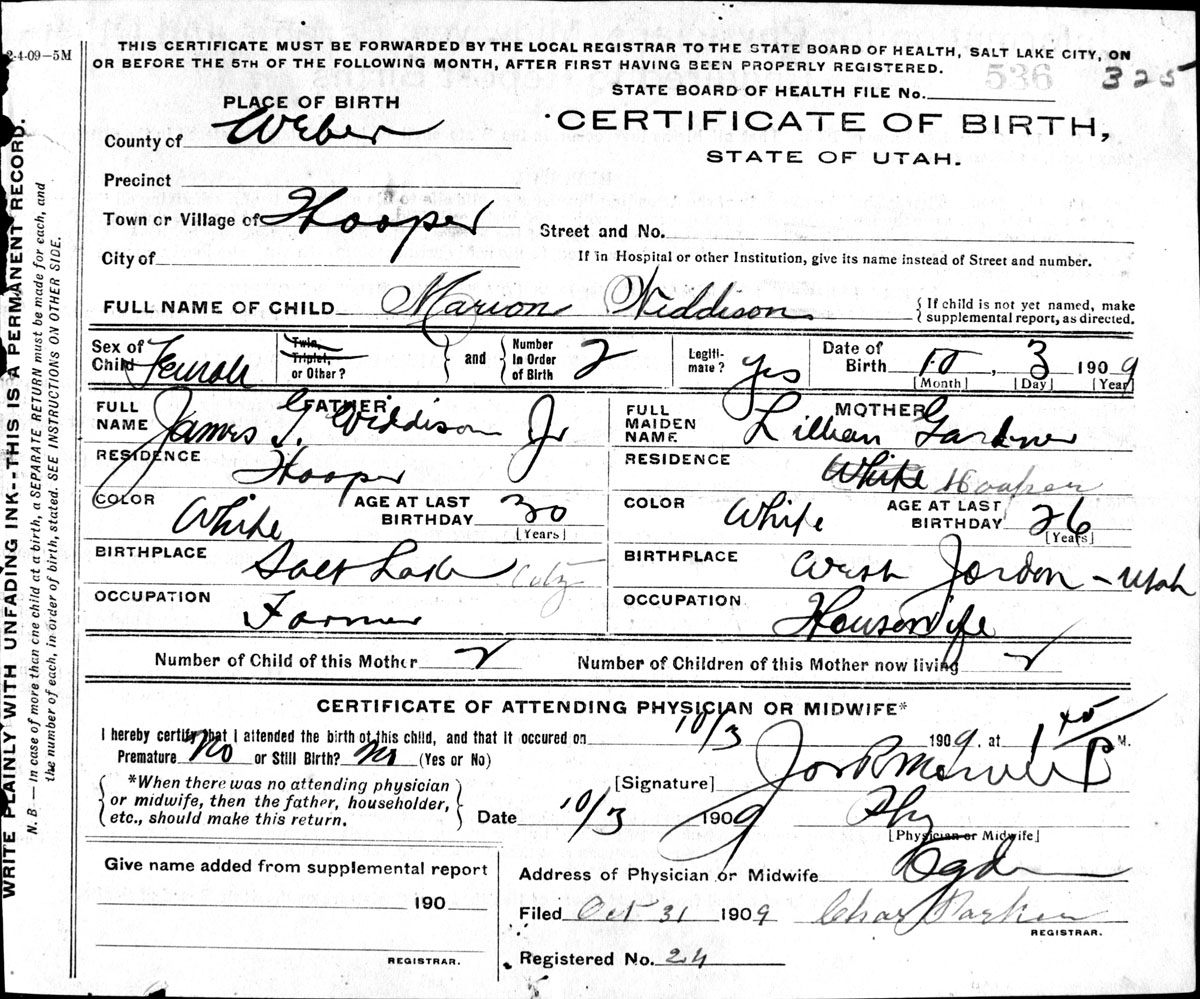 2-4-09—5M
THIS CERTIFICATE MUST BE FORWARDED BY THE LOCAL REGISTRAR TO THE STATE BOARD OF HEALTH, SALT LAKE CITY, ON
OR BEFORE THE 5TH OF THE FOLLOWING MONTH, AFTER FIRST HAVING BEEN PROPERLY REGISTERED.
536 325
STATE BOARD OF HEALTH FILE No.
PLACE OF BIRTH
CERTIFICATE OF BIRTH,
STATE OF UTAH.
County of Weber
Precinct
Town or Village of Hooper
Street and No.
City of
If in Hospital or other Institution, give its name instead of Street and number.
FULL NAME OF CHILD Marion Widdison
{ If child is not yet named, make
supplemental report, as directed.
Sex of Child Female
Twin, Triplet, or Other? } and { Number In Order of Birth 2
Legiti- mate? Yes
Date of Birth 10, 3 1909
[Month] [Day] [Year]
FATHER
FULL NAME James T. Widdison Jr
RESIDENCE Hooper
COLOR White AGE AT LAST BIRTHDAY 30
[Years]
BIRTHPLACE Salt Lake City
OCCUPATION Farmer
MOTHER
FULL MAIDEN NAME Lillian Gardner
RESIDENCE White Hooper
COLOR White AGE AT LAST BIRTHDAY 26
[Years]
BIRTHPLACE West Jordon - Utah
OCCUPATION Housewife
Number of Child of this Mother 2 Number of Children of this Mother now living 2
CERTIFICATE OF ATTENDING PHYSICIAN OR MIDWIFE*
I hereby certify that I attended the birth of this child, and that it occured on 10/3 1909, at 1 45 P M.
Premature No or Still Birth? No (Yes or No)
*When there was no attending physician
or midwife, then the father, householder,
etc., should make this return.
[Signature]
Date 10/3 1909 Phy
[Physician or Midwife]
Give name added from supplemental report
190
REGISTRAR.
Address of Physician or Midwife Ogden
Filed Oct 31 1909 Chas Parker
REGISTRAR.
Registered No. 24
WRITE PLAINLY WITH UNFADING INK--THIS IS A PERMANENT RECORD.
N. B.—In case of more than one child at a birth, a SEPARATE RETURN must be made for each, and
the number of each, in order of birth, stated. SEE INSTRUCTIONS ON OTHER SIDE.